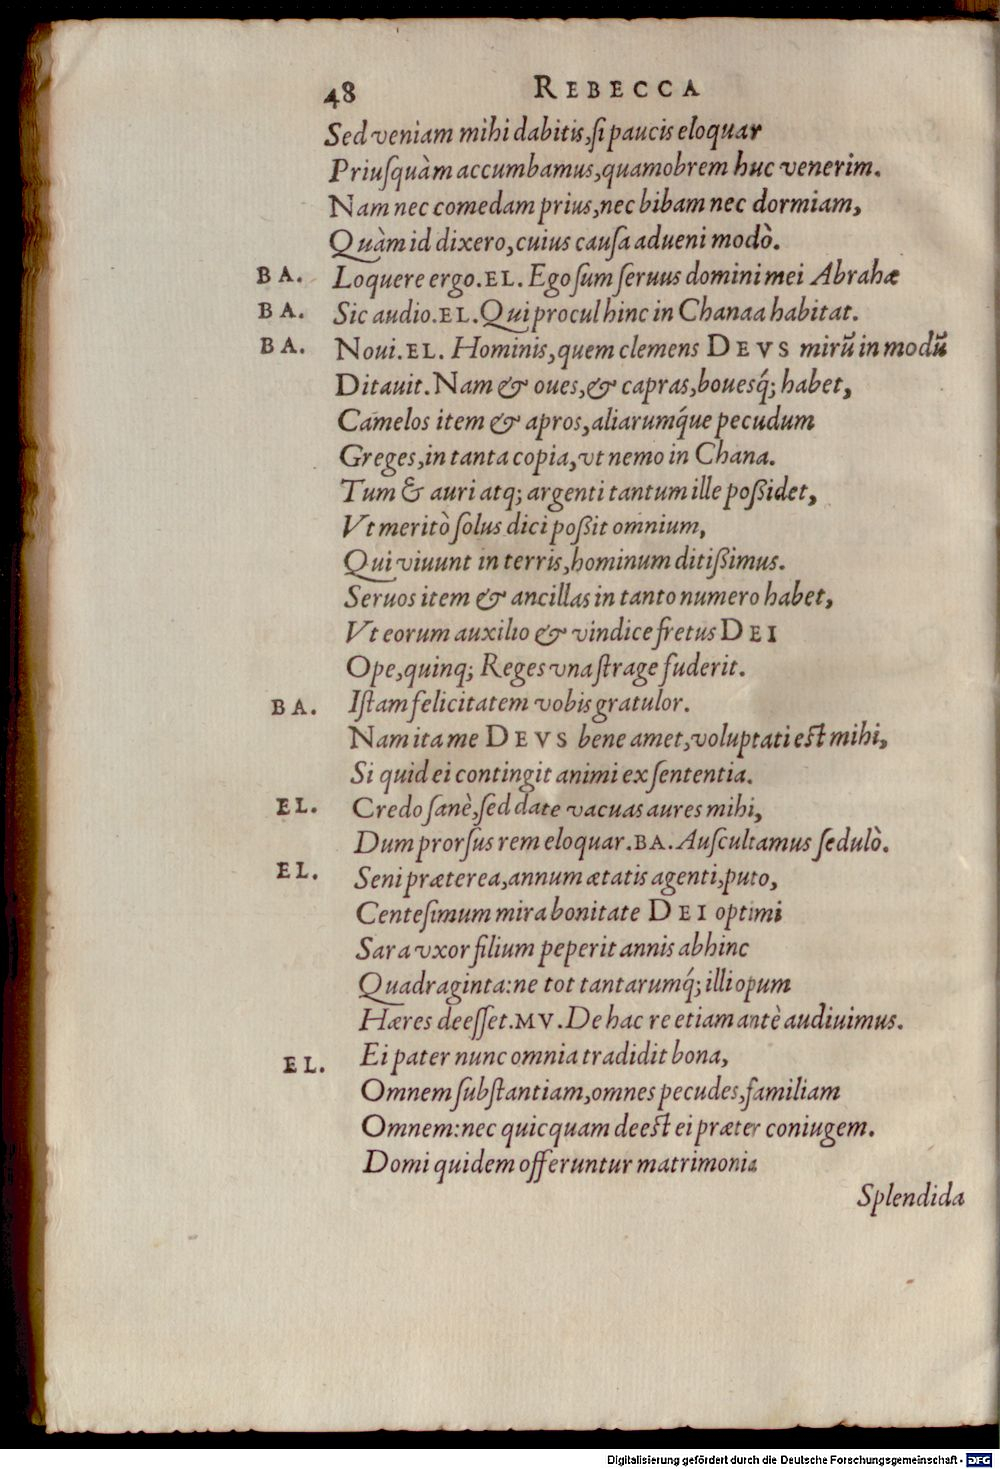 48 REBECCA
Sed veniam mihi dabitis, ſi paucis eloquar
Priuſquàm accumbamus, quamobrem huc venerim.
Nam nec comedam prius, nec bibam nec dormiam,
Quàm id dixero, cuius cauſa adueni modò.
BA. Loquere ergo. EL. Ego ſum ſeruus domini mei Abrahæ
BA. Sic audio. EL. Qui procul hinc in Chanaa habitat.
BA. Noui. EL. Hominis, quem clemens DEVS mirũ in modũ
Ditauit. Nam & oues, & capras, bouesq́; habet,
Camelos item & apros, aliarumq́ue pecudum
Greges, in tanta copia, vt nemo in Chana.
Tum & auri atq; argenti tantum ille poßidet,
Vt meritò ſolus dici poßit omnium,
Qui viuunt in terris, hominum ditißimus.
Seruos item & ancillas in tanto numero habet,
Vt eorum auxilio & vindice fretus DEI
Ope, quinq; Reges vna ſtrage fuderit.
BA. Iſtam felicitatem vobis gratulor.
Nam ita me DEVS bene amet, voluptati eſt mihi,
Si quid ei contingit animi ex ſententia.
EL. Credo ſanè, ſed date vacuas aures mihi,
Dum prorſus rem eloquar. BA. Auſcultamus ſedulò.
EL. Seni præterea, annum ætatis agenti, puto,
Centeſimum mira bonitate DEI optimi
Sara vxor filium peperit annis abhinc
Quadraginta: ne tot tantarumq́; illi opum
Hæres deeſſet. MV. De hac re etiam antè audiuimus.
EL. Ei pater nunc omnia tradidit bona,
Omnem ſubſtantiam, omnes pecudes, familiam
Omnem: nec quicquam deeſt ei præter coniugem.
Domi quidem offeruntur matrimonia
Splendida
Digitalisierung gefördert durch die Deutsche Forschungsgemeinschaft - DFG